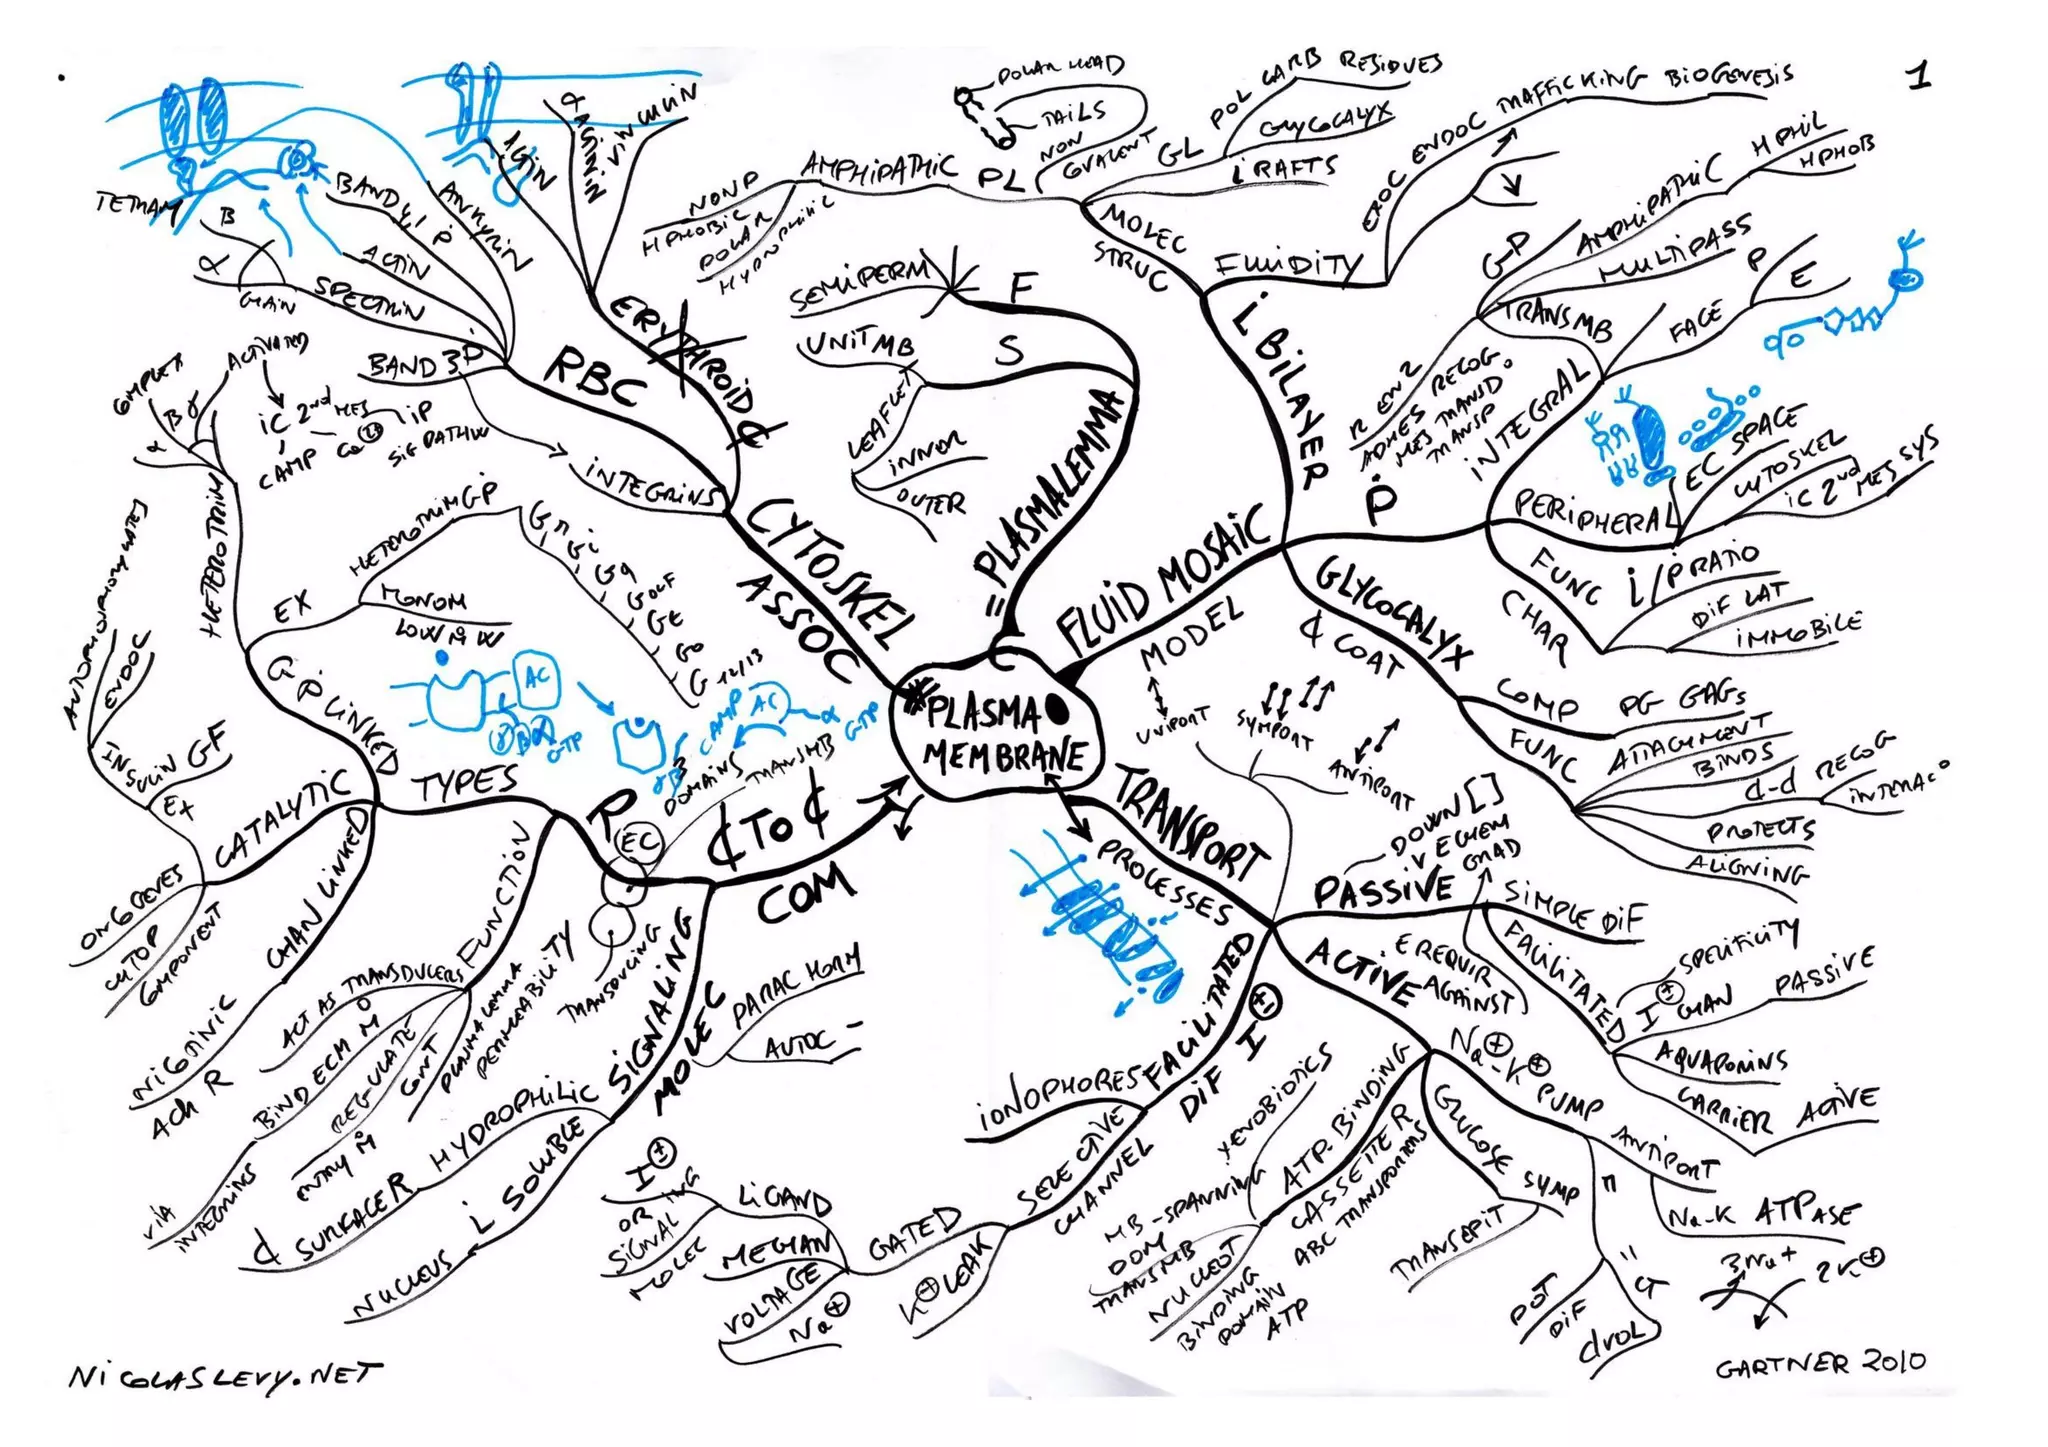 1
PLASMA
MEMBRANE
= PLASMALEMMA
F
SEMIPERM
S
UNIT MB
LEAFLET
INNER
OUTER
FLUID MOSAIC
MODEL
L BILAYER
MOLEC
STRUC
PL
AMPHIPATHIC
NONP
HPHOBIC
POLAR
HYDROPHILIC
POLAR HEAD
TAILS
NON
COVALENT
GL
POL CARB RESIDUES
GLYCOCALYX
L RAFTS
FLUIDITY
EXOC ENDOC TRAFFICKING BIOGENESIS
P
INTEGRAL
TRANSMB
GP
AMPHIPATHIC
HPHIL
HPHOB
MULTIPASS
FACE
P
E
R ENZ
ADHES RECOG.
MES TRANSD.
TRANSP
PERIPHERAL
EC SPACE
CYTOSKEL
IC 2nd MES SYS
FUNC
CHAR
L/P RATIO
DIF LAT
IMMOBILE
GLYCOCALYX
¢ COAT
COMP
PG GAGs
FUNC
ATTACHMENT
BINDS
¢-¢ RECOG
INTERAC°
PROTECTS
ALIGNING
TRANSPORT
PROCESSES
UNIPORT
SYMPORT
ANTIPORT
PASSIVE
DOWN []
ECHEM
GRAD
SIMPLE DIF
FACILITATED
SPECIFICITY
I± CHAN
PASSIVE
AQUAPORINS
CARRIER
ACTIVE
ACTIVE
E REQUIR
AGAINST
Na+-K+ PUMP
ANTIPORT
Na-K ATPASE
3Na+
2K+
POT
DIF
¢ VOL
GLUCOSE SYMP
TRANSEPIT
ATP-BINDING
CASSETTE R
ABC TRANSPORTERS
XENOBIOTICS
MB-SPANNING
DOM
TRANSMB
NUCLEOT
BINDING
DOMAIN
ATP
FACILITATED
DIF I±
IONOPHORES
SELECTIVE
CHANNEL
K+ LEAK
GATED
LIGAND
I±
OR
SIGNALING
MOLEC
MECHAN
VOLTAGE
Na+
¢ TO ¢
COM
SIGNALING
MOLEC
PARAC HORM
AUTOC
HYDROPHILIC
¢ SURFACE R
L SOLUBLE
NUCLEUS
R
3 DOMAINS
TRANSMB
EC
TRANSDUCING
FUNCTION
ACT AS TRANSDUCERS
BIND ECM
VIA
INTEGRINS
REGULATE
ENTRY M
CONT
PLASMALEMMA
PERMEABILITY
TYPES
CHAN LINKED
NICOTINIC
Ach R
CATALYTIC
EX
INSULIN GF
ENDOC
AUTOPHOSPHORYLATES
ONCOGENES
CYTOP
COMPONENT
G P LINKED
HETEROTRIM
COMPLEX
α
Bγ
ACTIVATED
IC 2nd MES
CAMP
Ca2+
IP
SIG PATHW
EX
HETEROTRIM GP
Gs
Gi
Gq
Golf
Gt
Go
G12/13
MONOM
LOW M W
AC
GTP
CAMP
AC
α
GTP
CYTOSKEL
ASSOC
RBC
INTEGRINS
BAND 3 P
SPECTRIN
CHAIN
α
B
ACTIN
BAND 4,1 P
ANKYRIN
TETRAM
ERYTHROID ¢
ACTIN
α ACTININ
VINCULIN
NICOLASLEVY.NET
GARTNER 2010